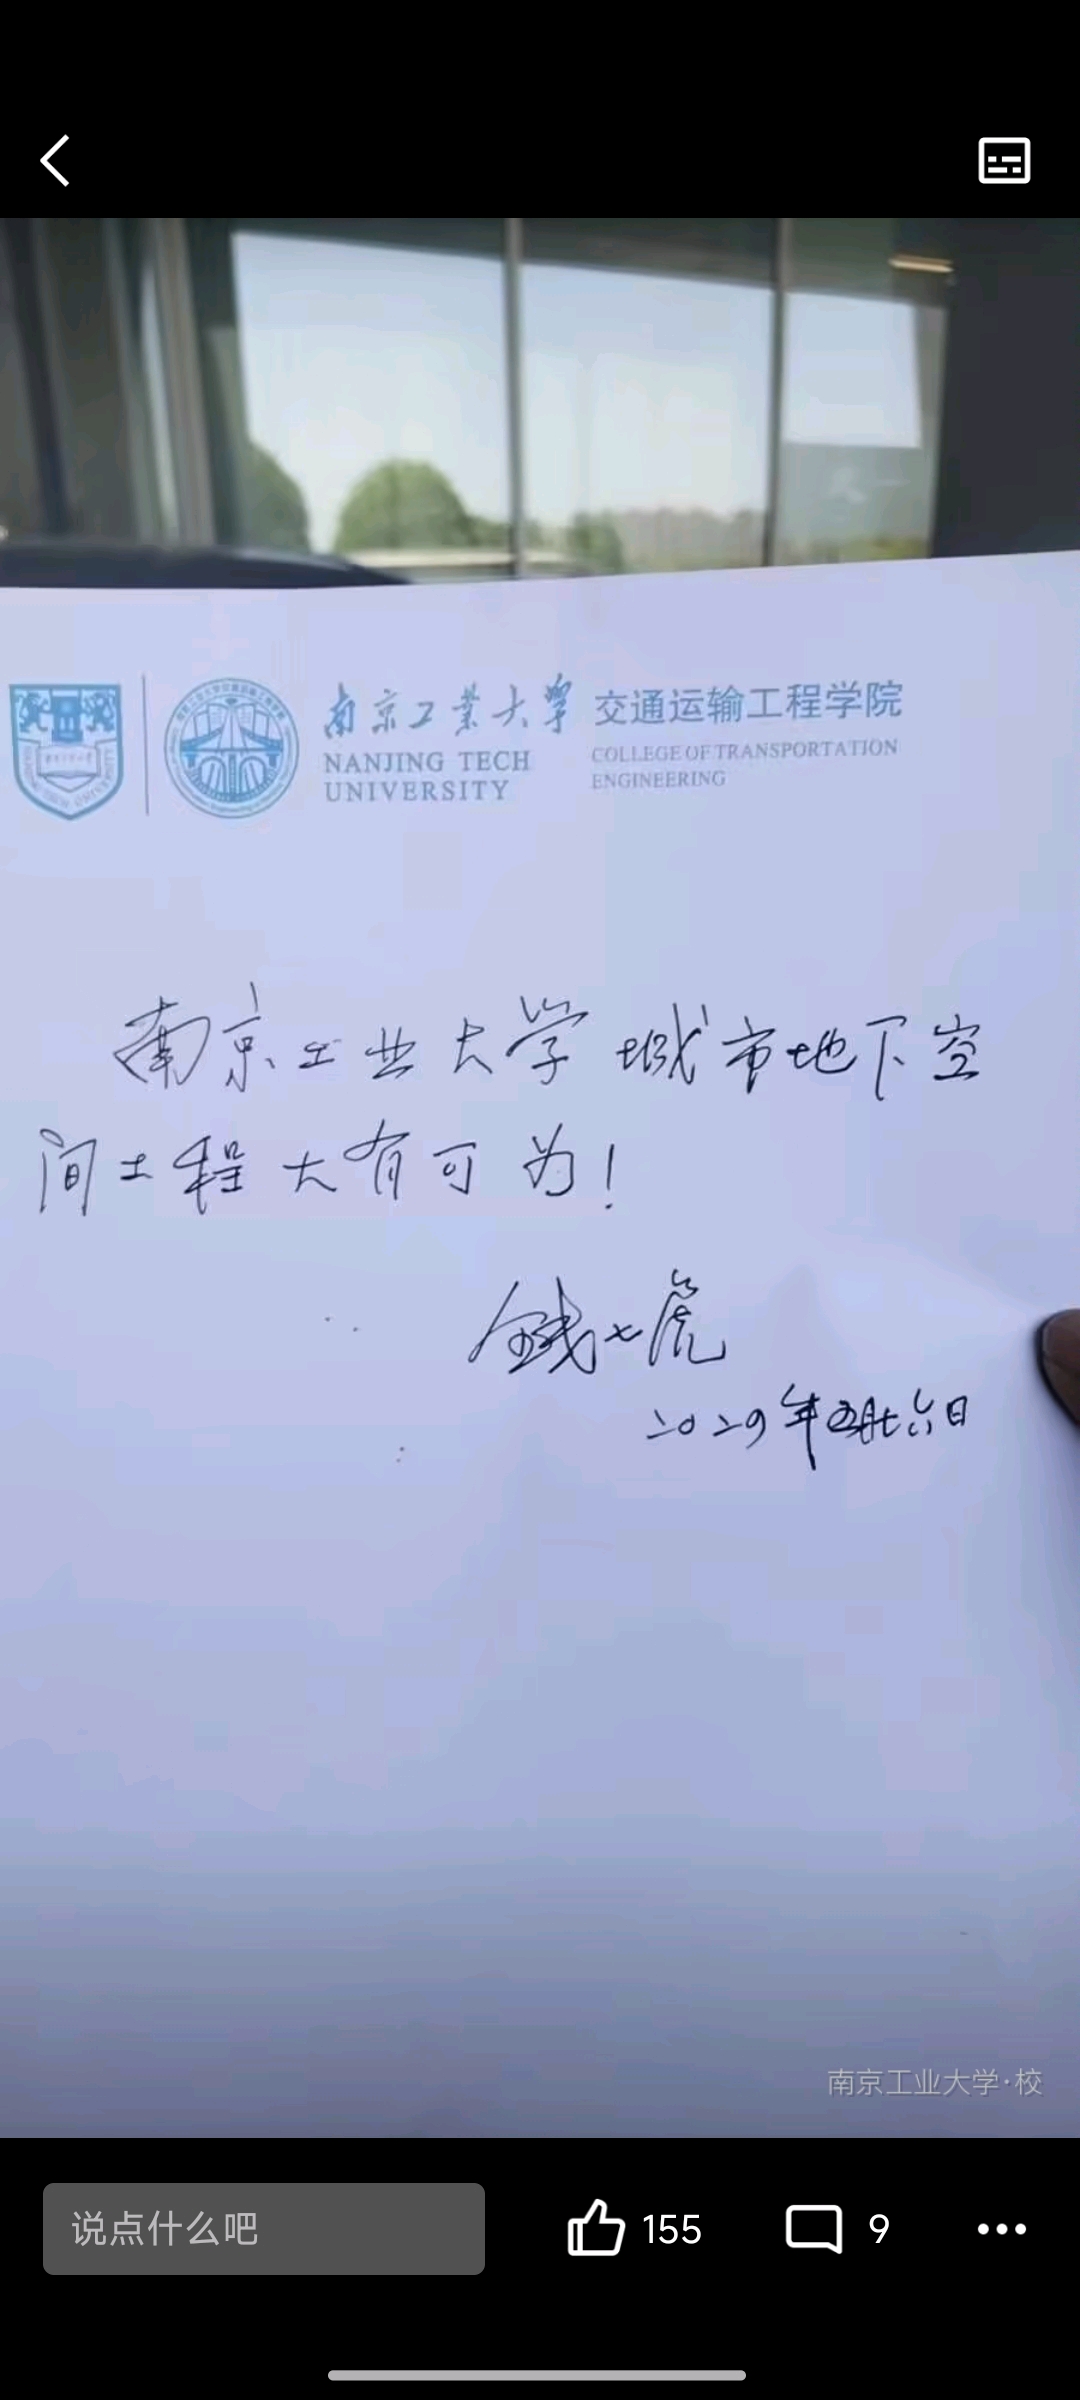 南京工业大学 交通运输工程学院
NANJING TECH UNIVERSITY
COLLEGE OF TRANSPORTATION ENGINEERING
南京工业大学城市地下空
间工程大有可为！
钱七虎
年 月 六日
南京工业大学·校
说点什么吧
155
9